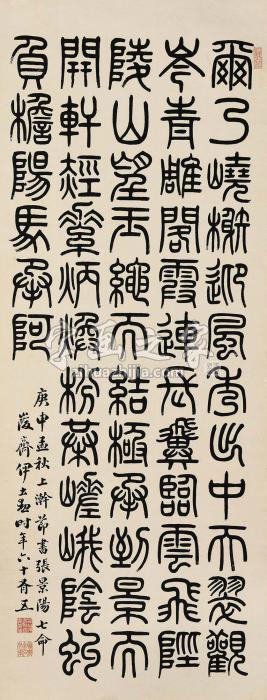 爾乃嶢榭迎風秀出中天翠觀
岑青雕閣霞連長翼臨雲飛陛
陵山望玉繩而結極承到景而
開軒赬素炳煥枌栱嵯峨陰虯
負檐陽馬承阿
庚申孟秋上澣節書張景陽七命
峻齋伊立勳時年六十有五